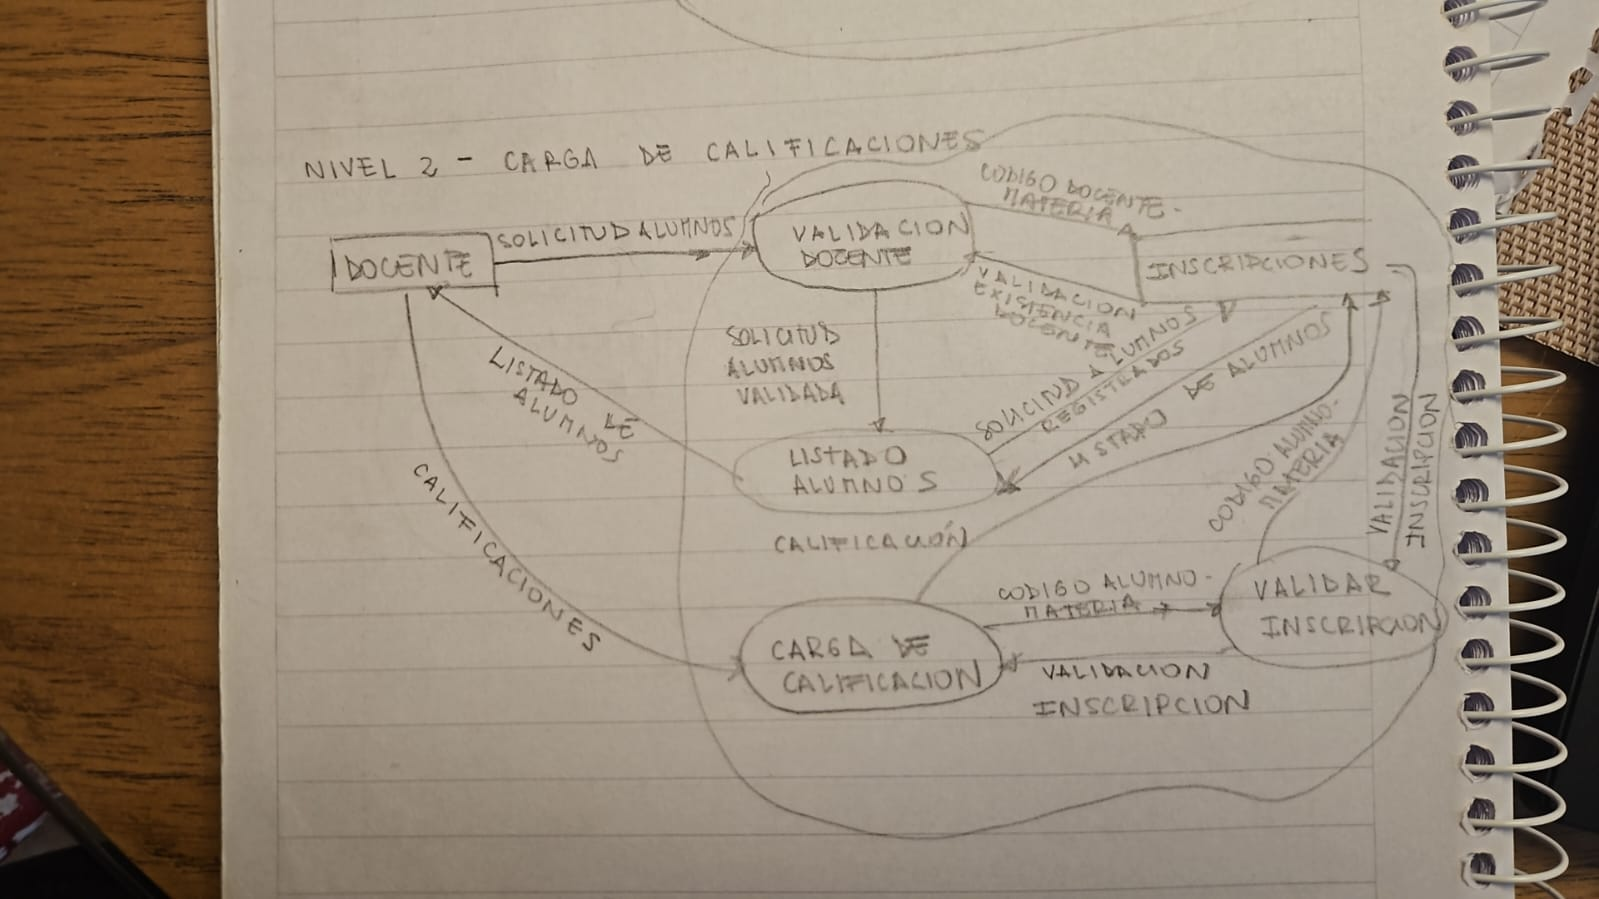 NIVEL 2 - CARGA DE CALIFICACIONES
DOCENTE
SOLICITUD ALUMNOS
VALIDACION
DOCENTE
CODIGO DOCENTE-
MATERIA
INSCRIPCIONES
VALIDACION
EXISTENCIA
DOCENTE
SOLICITUD
ALUMNOS
VALIDADA
LISTADO DE
ALUMNOS
LISTADO
ALUMNOS
SOLICITUD ALUMNOS
REGISTRADOS
LISTADO DE ALUMNOS
CALIFICACIONES
CALIFICACIÓN
CODIGO ALUMNO-
MATERIA
VALIDACION
INSCRIPCION
CARGA DE
CALIFICACION
CODIGO ALUMNO-
MATERIA
VALIDAR
INSCRIPCION
VALIDACION
INSCRIPCION